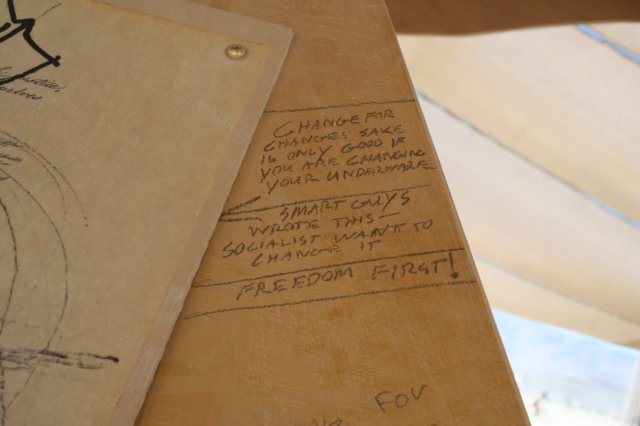 CHANGE FOR
CHANGES SAKE
IS ONLY GOOD IF
YOU ARE CHANGING
YOUR UNDERWARE
SMART GUYS
WROTE THIS —
SOCIALIST WANT TO
CHANGE IT
FREEDOM FIRST!
FOV